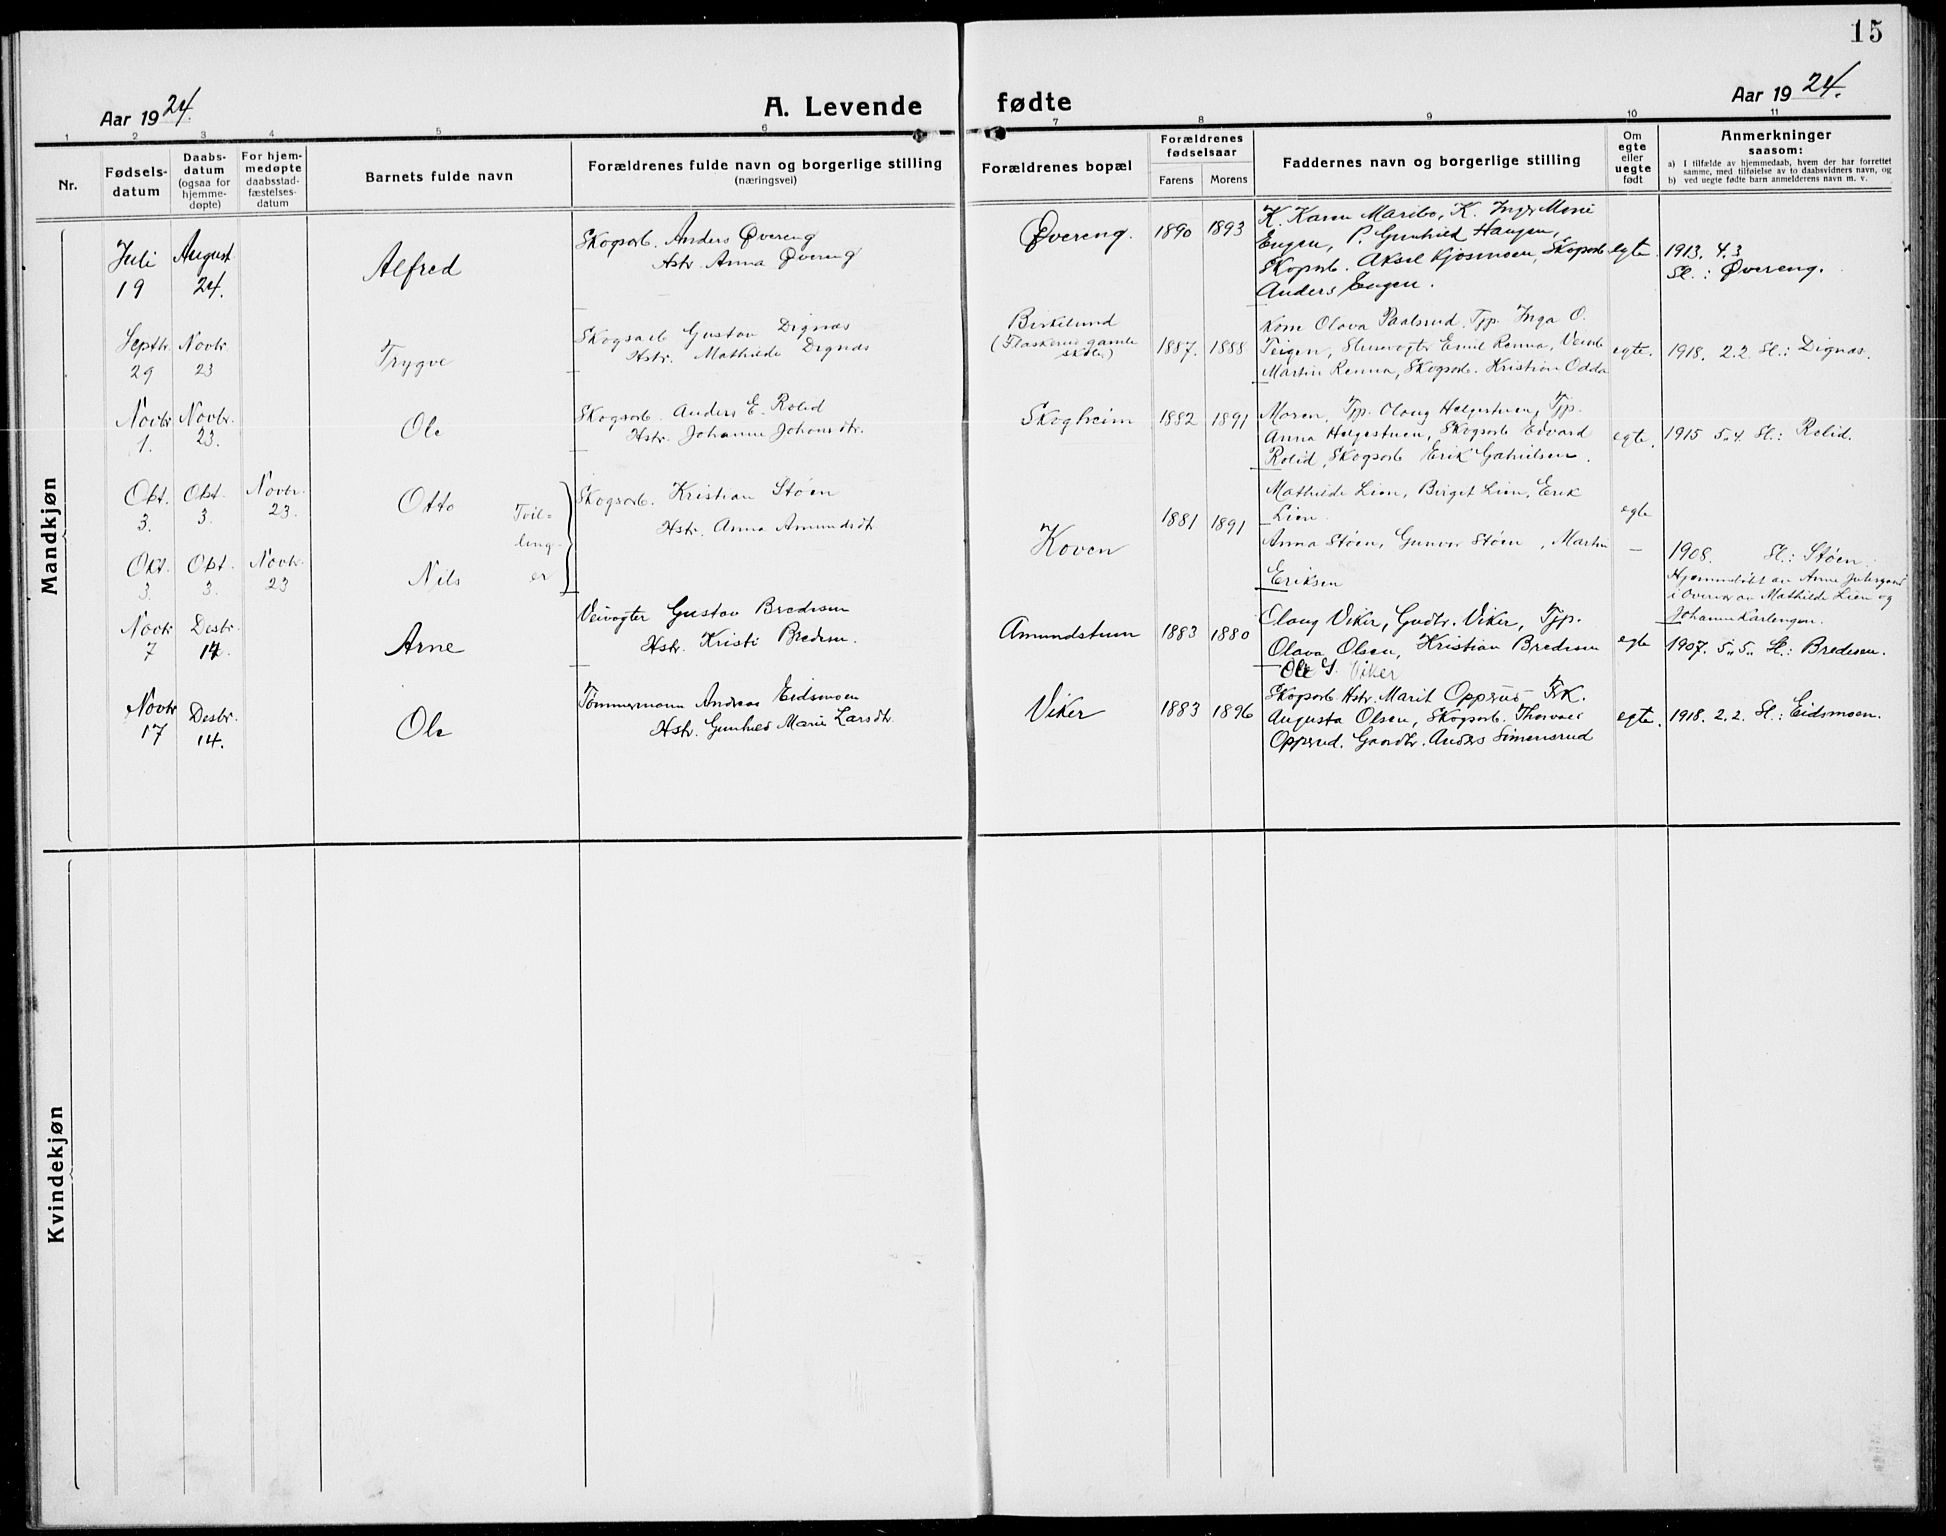 15
Aar 1924.
A. Levende fødte
Aar 1924.
1 2 3 4 5 6 7 8 9 10 11
Nr.
Fødsels-
datum
Daabs-
datum
(ogsaa for
hjemme-
døpte)
For hjem-
medøpte
daabsstad-
fæstelses-
datum
Barnets fulde navn
Forældrenes fulde navn og borgerlige stilling
(næringsvei)
Forældrenes bopæl
Forældrenes
fødselsaar
Farens Morens
Faddernes navn og borgerlige stilling
Om
egte
eller
uegte
født
Anmerkninger
saasom:
a) I tilfælde av hjemmedaab, hvem der har forrettet
samme, med tilføielse av to daabsvidners navn, og
b) ved uegte fødte barn anmelderens navn m. v.
Mandkjøn
Juli
19
August
24.
Alfred
Skogsarb. Anders Øvereng
Hstr. Anna Øvereng
Øvereng.
1890 1893
K. Karen Maribo, K. Inger Marie
Engen, P. Gunhild Haugen,
Skogsarb. Aksel Kjosmoen, Skogsarb
Anders Engen.
egte.
1913. 4.3
Sl.: Øvereng.
Septbr.
29
Novbr
23
Trygve
Skogsarb Gustav Dignæs
Hstr. Mathilde Dignæs
Birkelund
(Flaskerud gamle
skole)
1887. 1888
Kone Olava Paalsrud, Tjp. Inga O.
Teigen, Slusevogter Emil Renna,
Martin Renna, Skogsarb. Kristian Odda
egte.
1918. 2.2. Sl.: Dignæs.
Novbr
1.
Novbr.
23.
Ole
Skogsarb. Anders E. Rolid
Hstr. Johanne Johansdtr.
Skogheim
1882 1891
Maren, Tjp. Olaug Helgestuen, Tjp.
Anna Helgestuen, Skogsarb Edvard
Rolid, Skogsarb Erik Gabrielsen.
egte.
1915 5.4. Sl.: Rolid.
Okt.
3.
Okt.
3.
Novbr.
23.
Otto
Tvil-
ling-
er
Skogsarb. Kristian Støen
Hstr. Anna Amundsdtr
Koven
1881 1891
Mathilde Lien, Birgit Lien, Erik
Lien.
egte
Okt.
3.
Okt.
3.
Novbr.
23
Nils
Anna Støen, Gunvor Støen, Martin
Eriksen
—
1908. Sl.: Støen.
Hjemmedøbt av Anne
i Overvær av Mathilde Lien og
Johanne Karlengen.
Novbr
7
Desbr.
14.
Arne
Veivogter Gustav Bredesen
Hstr. Kristi Bredesen.
Amundstuen
1883 1880
Olaug Viker, Gudbr. Viker, Tjp.
Olava Olsen, Kristian Bredesen
Ole G. Viker
egte
1907. 5. 5. Sl.: Bredesen.
Novbr
17
Desbr.
14.
Ole
Tømmermann Andreas Eidsmoen
Hstr. Gunhild Marie Larsdtr.
Viker
1883 1896
Skogsarb Hstr. Marit Opperud Frk.
Augusta Olsen, Skogsarb. Thorvald
Opperud. Gaardbr. Anders Simensrud
egte.
1918. 2.2. Sl.: Eidsmoen.
Kvindekjøn